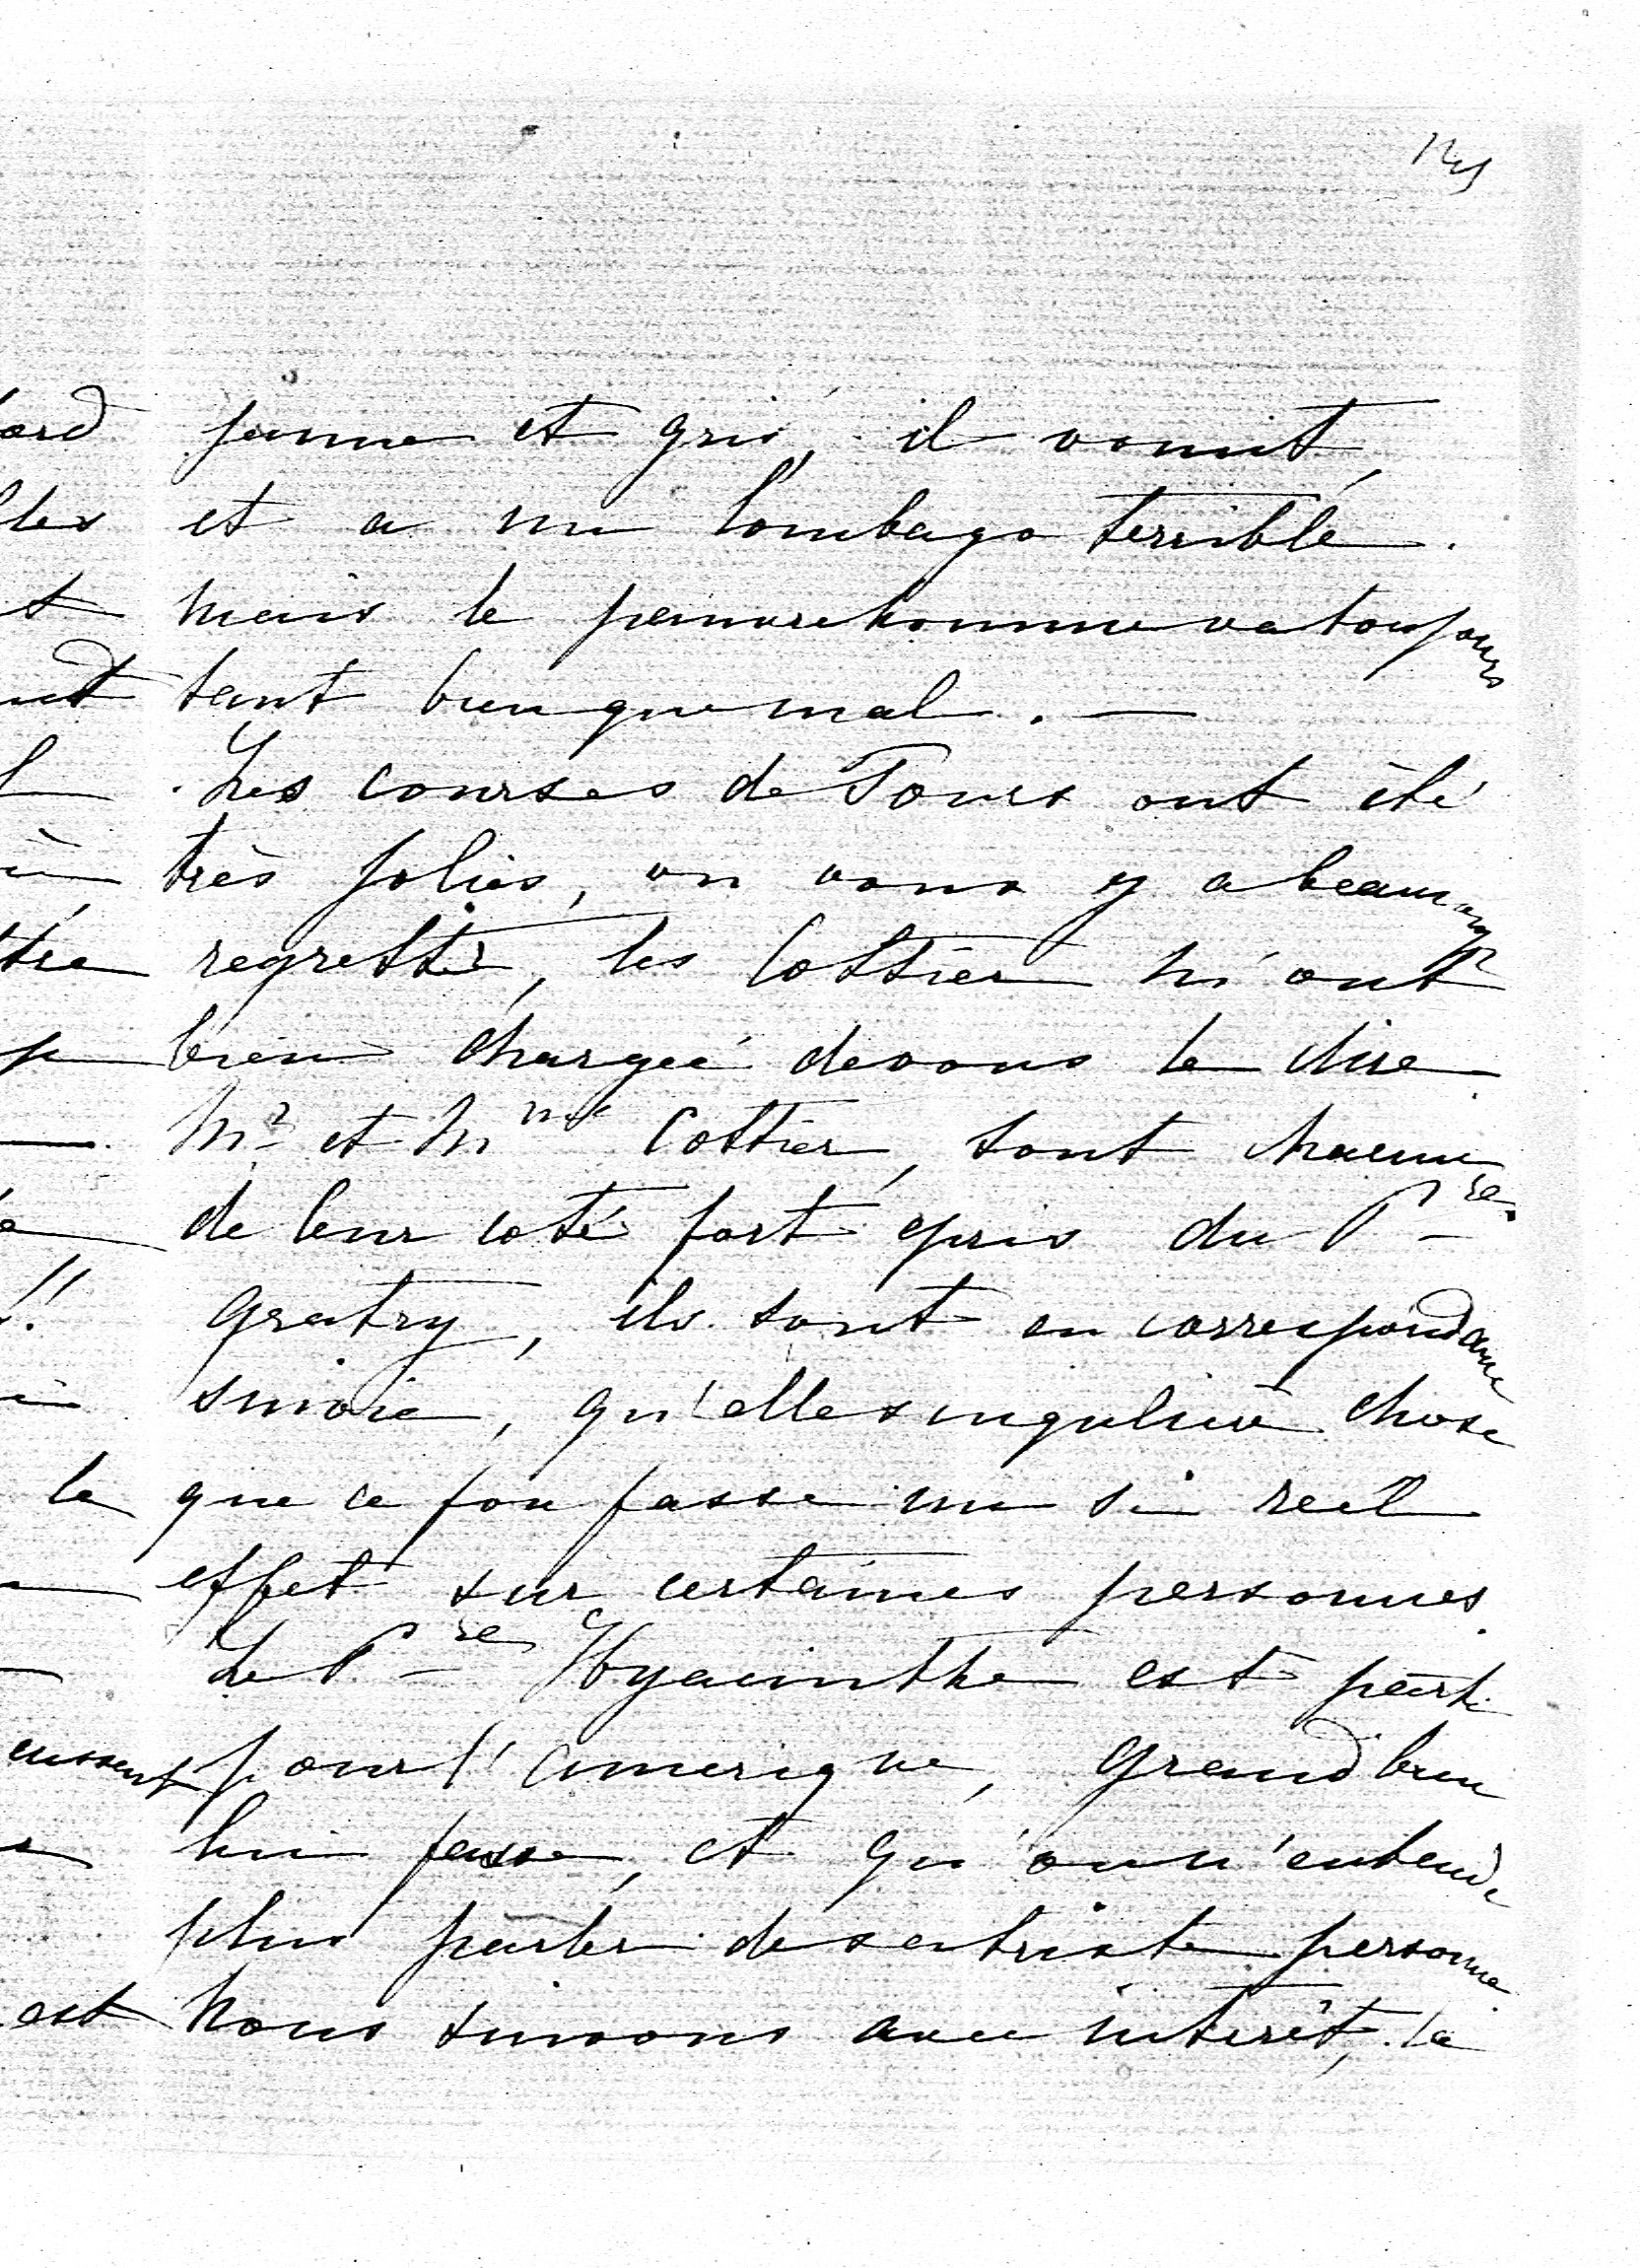 jaune et gris, il vomit,
et a un lombago terrible.
mais le pauvre homme va toujours
tant bien que mal. —
Les courses de Tours ont été
très jolies, on vous y a beaucoup
regretté, les Cottier m'ont
bien chargée de vous le dire
Mr et Mme Cottier, sont chacun
de leur coté fort epris du Pre
Gratry, ils sont en correspondance
suivie, qu'elle singulière chose
que ce fou fasse un si reél
effet sur certaines personnes.
Le Pre Hyacinthe est parti
pour l'amerique, grand bien
lui fasse, et qu'on n'entende
plus parler de sa triste personne.
Nous suivons avec intérêt, la